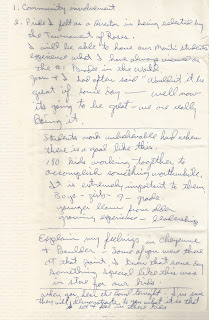 1. Community involvement
2. Pride I felt as a Director in being selected by
the Tournament of Roses.
I will be able to have our students
experience what I have always
the #1 Parade in the world
you & I had often said "Wouldn't it be
great if some day — well now
its going to be great - we are really
doing it.
Students work unbelievable hard when
there is a goal like this.
180 kids working together to
accomplish something worthwhile.
It is extremely important to them
Boys - girls - 7- grade
younger learn from older
growing experience - leadership
Explain my feelings on Cheyenne
Boulder - Some of you were there
at that point I knew that some day
something special like this was
in store for our kids
When you hear the band tonight I'm sure
they will demonstrate to you what it is that
I see in these kids